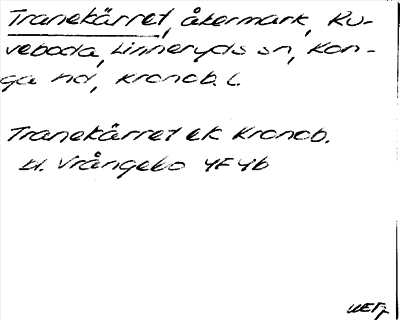 Tranekärret, åkermark, Ku-
veboda, Linneryds sn, Kon-
ga hd, Kronob. l.
Tranekärret ek Kronob.
bl. Vrångebo 4F4b